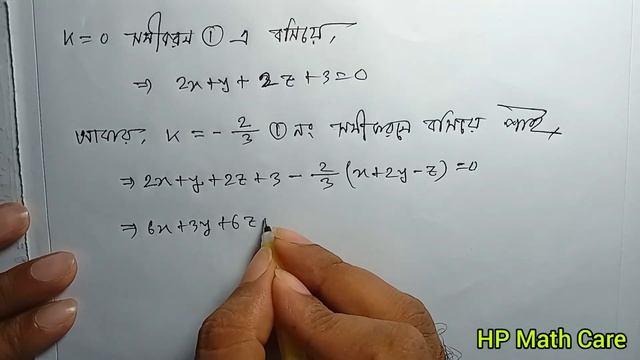 K = 0 সমীকরণ ① এ বসিয়ে,
⇒ 2x + y + 2z + 3 = 0
আবার, K = - 2/3 ① নং সমীকরণে বসিয়ে পাই,
⇒ 2x + y + 2z + 3 - 2/3 (x + 2y - z) = 0
⇒ 6x + 3y + 6z
HP Math Care